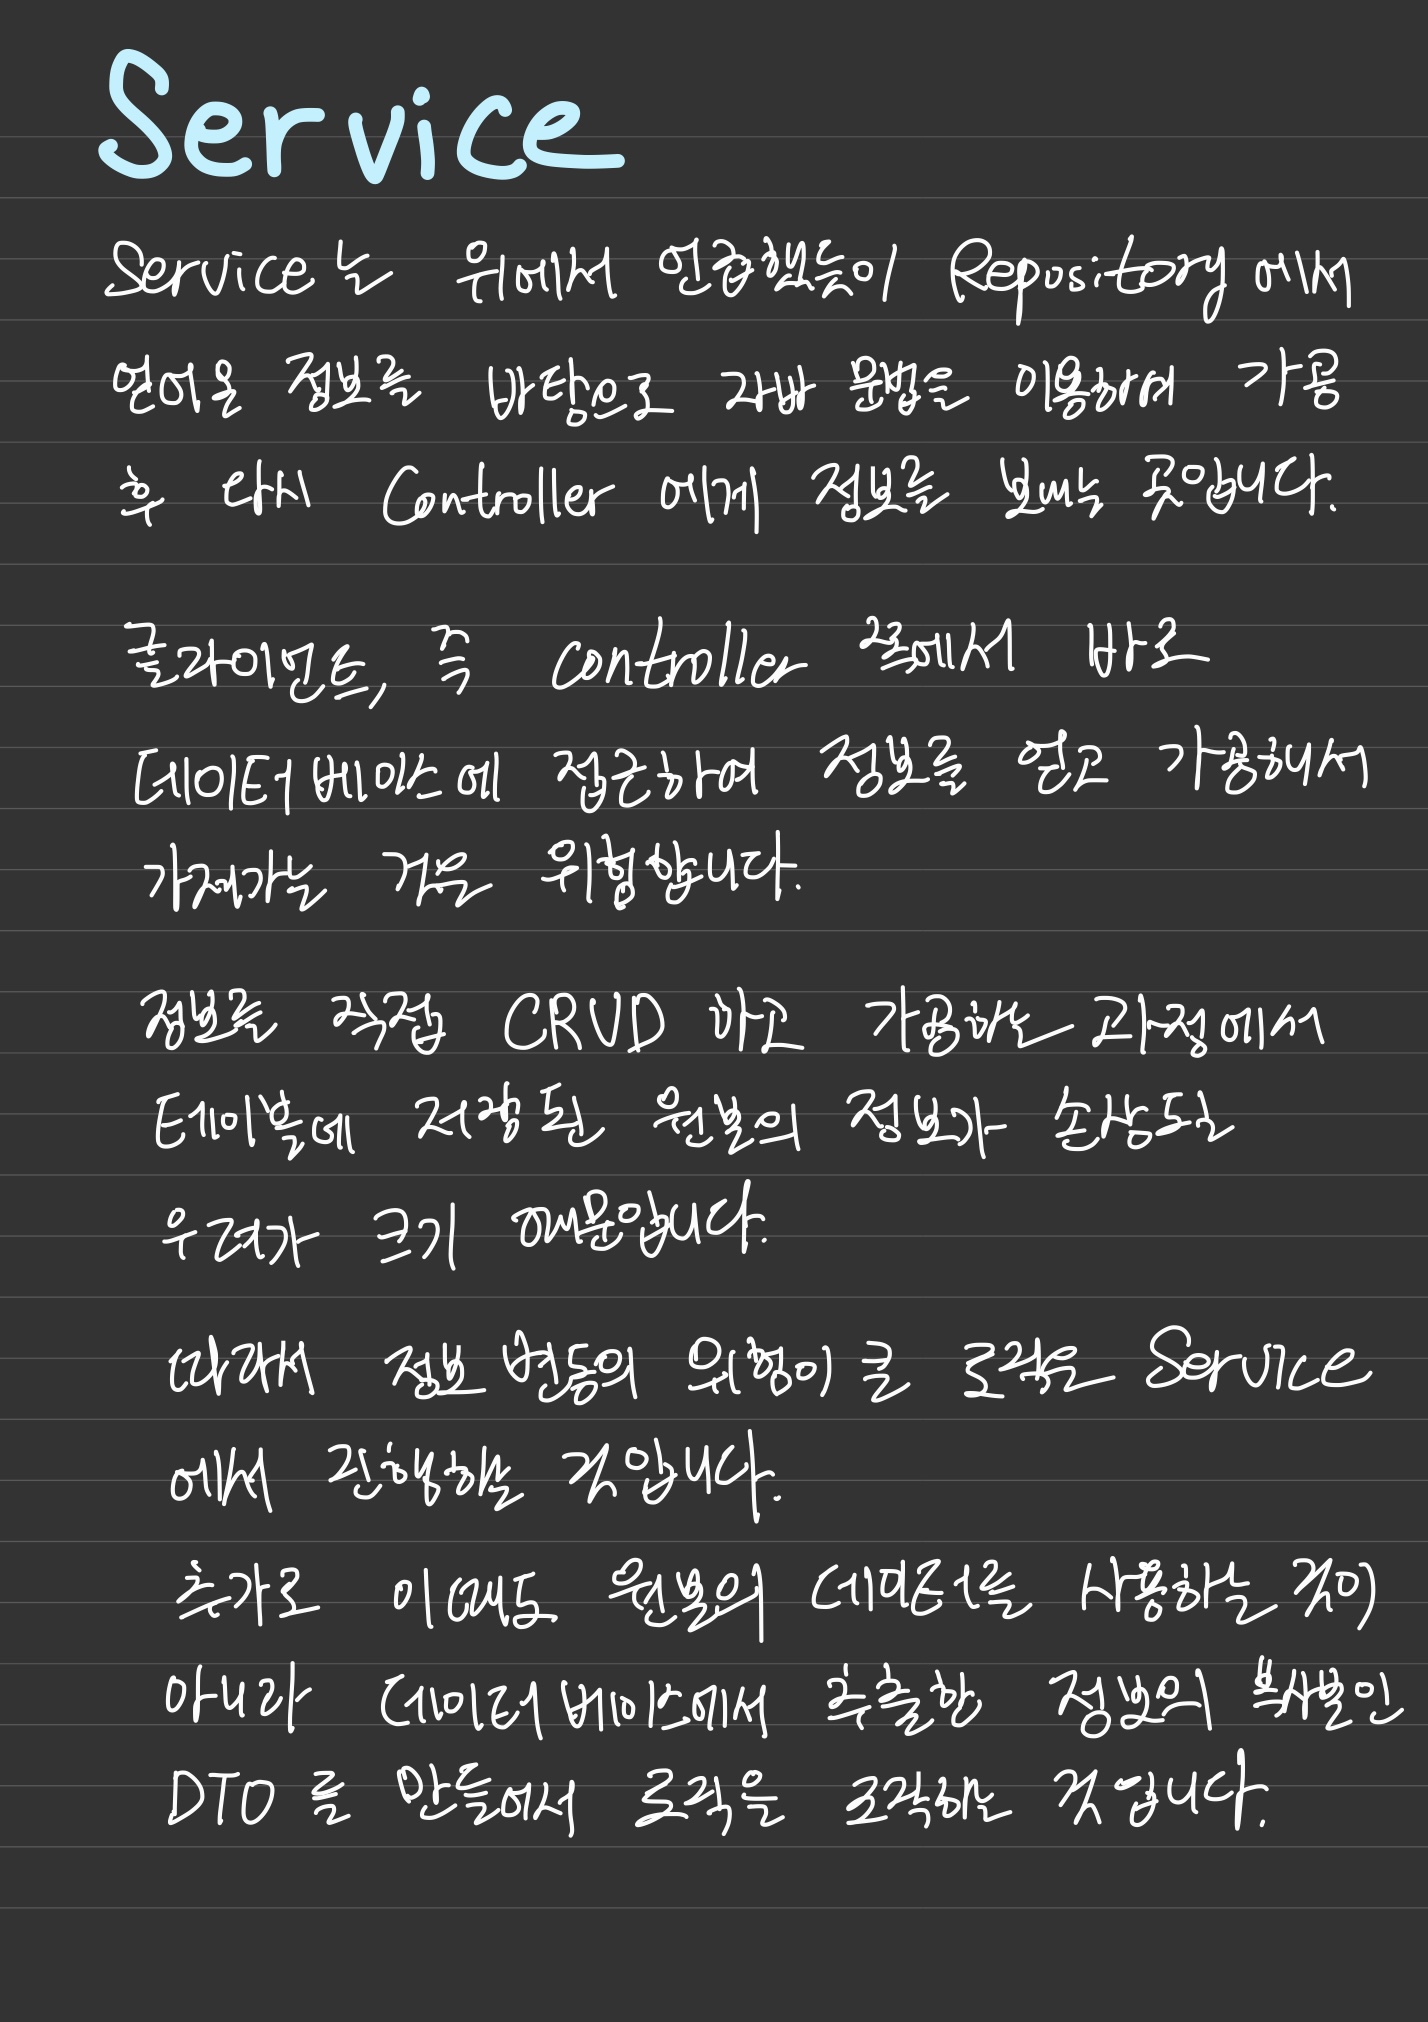 Service
Service는 위에서 언급했듯이 Repository에서
얻어온 정보를 바탕으로 자바 문법을 이용하여 가공
후 다시 Controller 에게 정보를 보내는 곳입니다.
클라이언트, 즉 controller 쪽에서 바로
데이터베이스에 접근하여 정보를 얻고 가공해서
가져가는 것은 위험합니다.
정보를 직접 CRUD 하고 가공하는 과정에서
테이블에 저장된 원본의 정보가 손상될
우려가 크기 때문입니다.
따라서 정보 변동의 위험이 큰 로직은 Service
에서 진행하는 것입니다.
추가로 이때도 원본의 데이터를 사용하는 것이
아니라 데이터베이스에서 추출한 정보의 복사본인
DTO 를 만들어서 로직을 조작하는 것입니다.